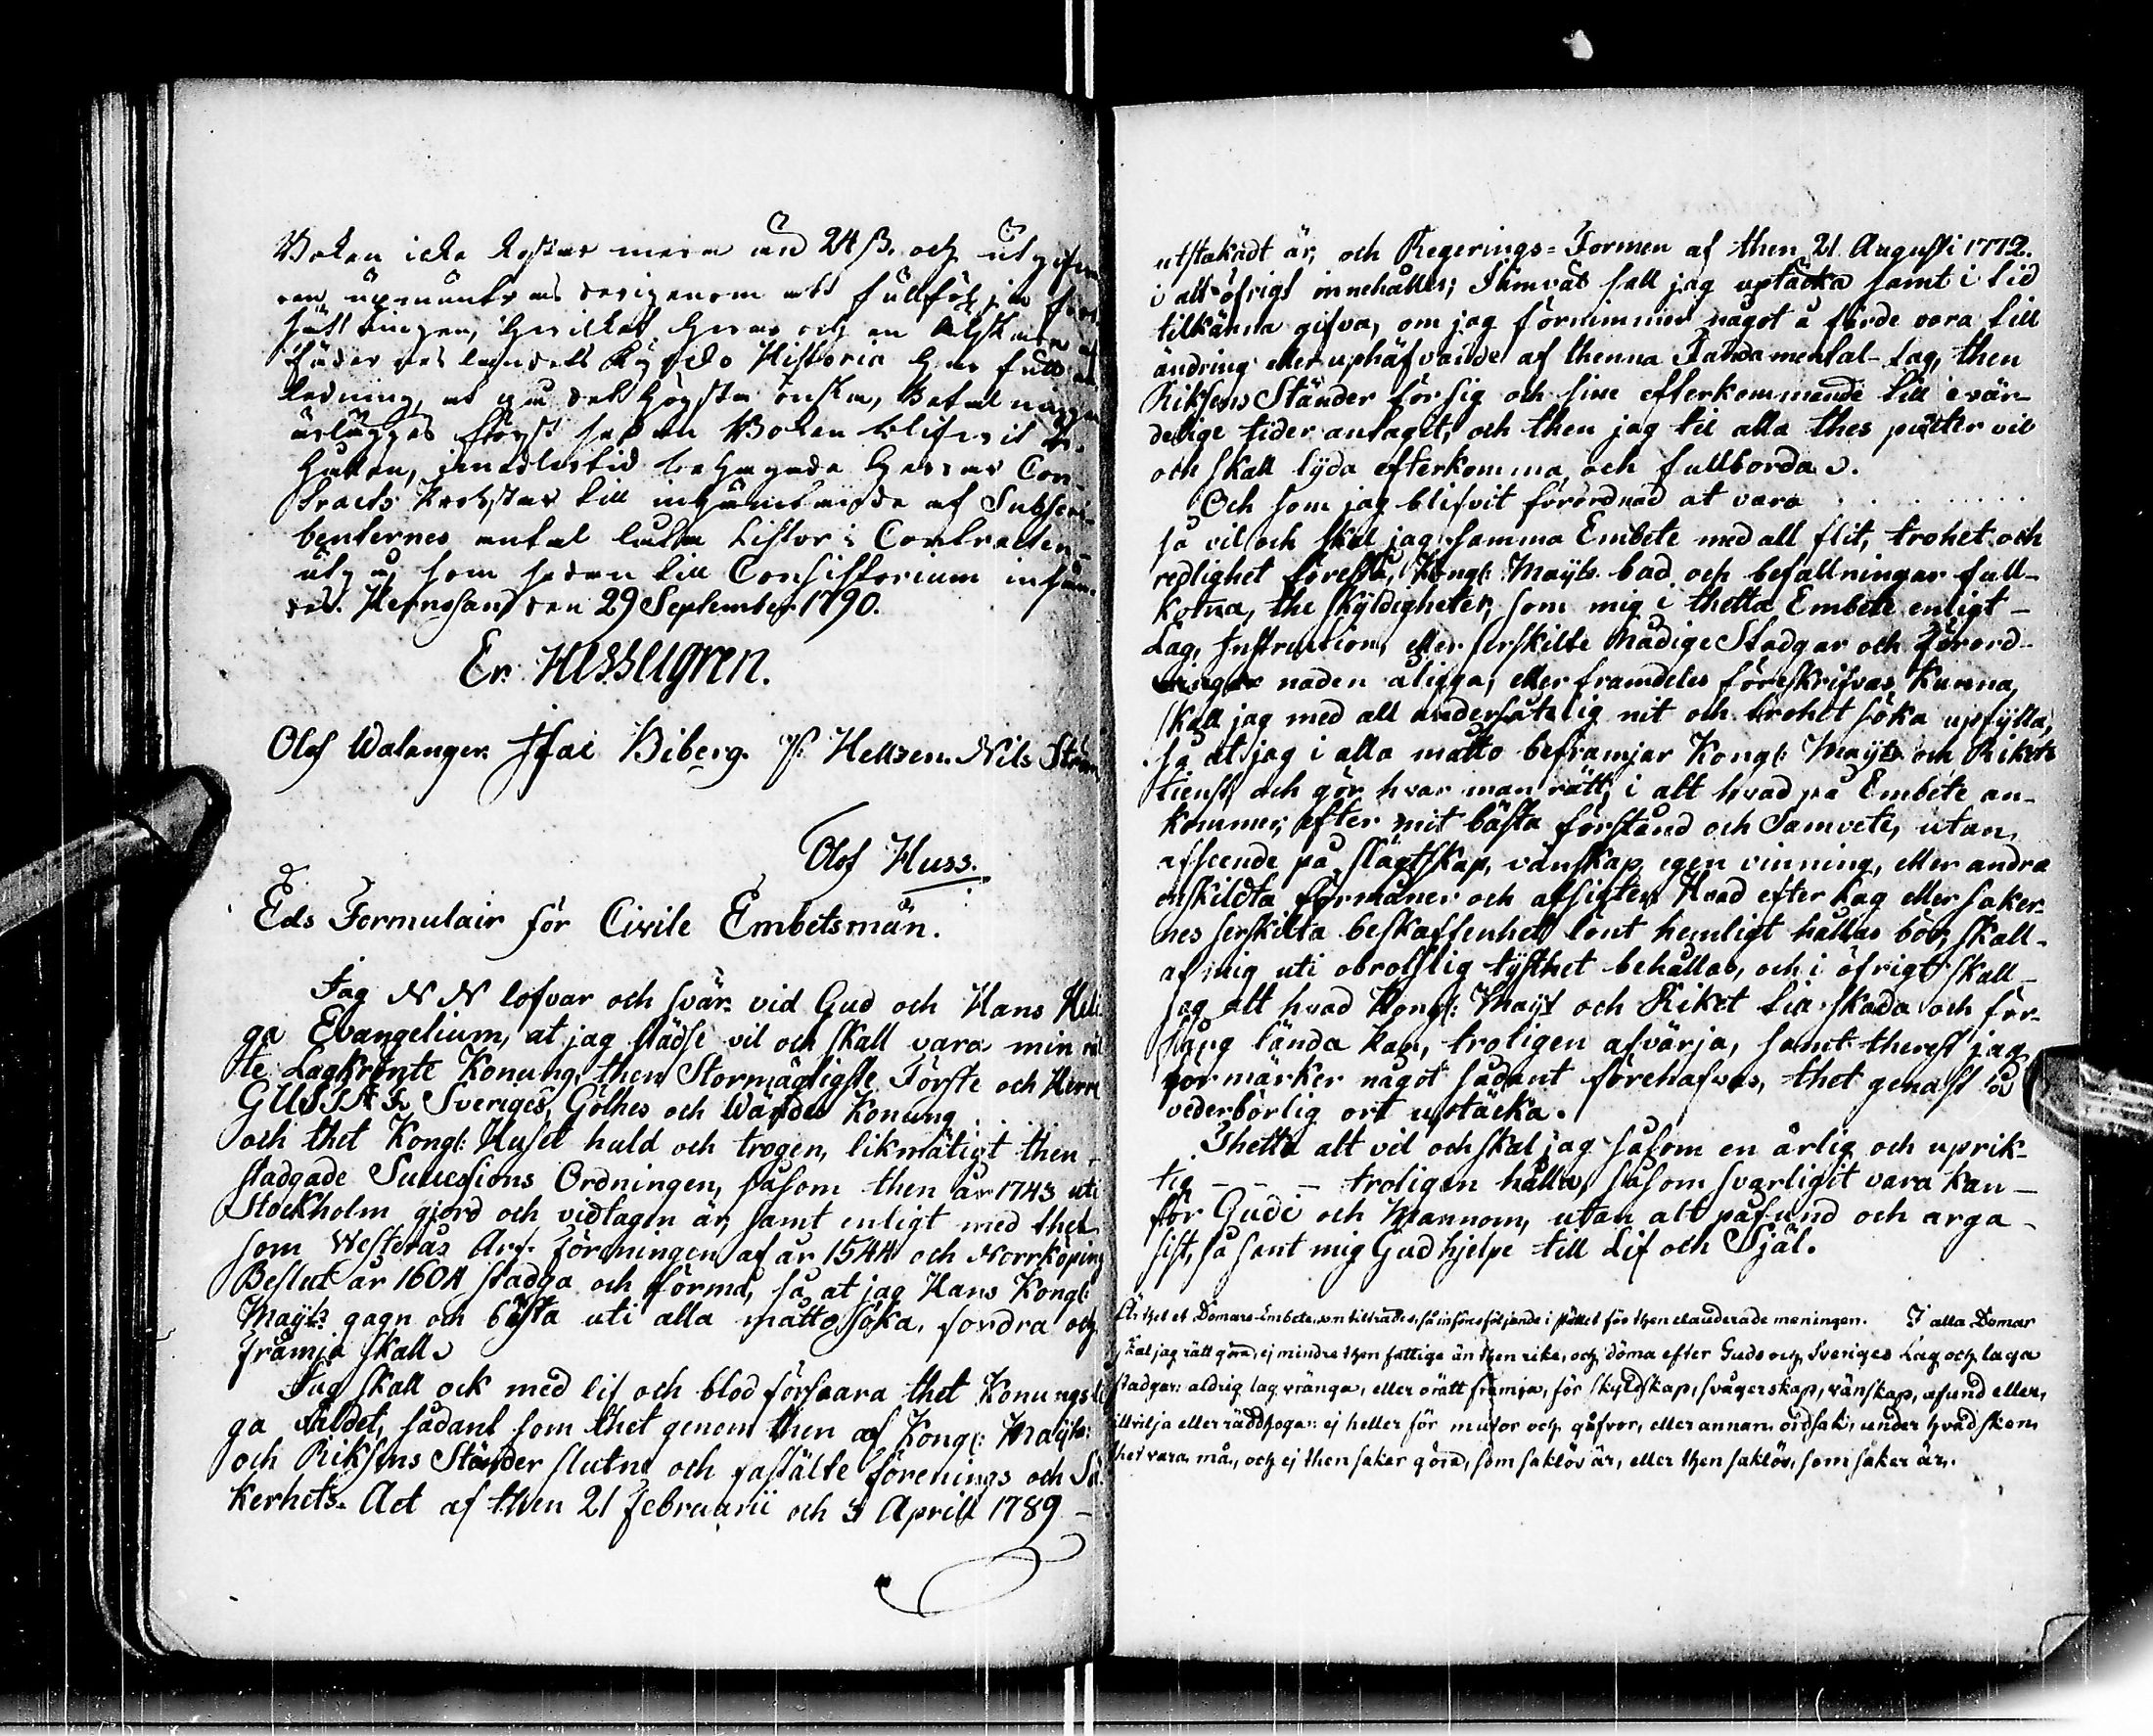 Boken icke kostar mera än 24 ß. och utgifva-
ren upmuntras derigenom att fullfölja fort-
sättningen, hvilket hvar och en älskare af
Fäderneslandets Kyrko Historia har full an-
ledning, at på det högsta önska, Betalningen
erlägges först sedan Boken blifvit
hållen, imedlertid behagade Herrar Con-
tracts Prostar till inhämtande af Subscri-
benternes antal låta Listor i Contracten
utgå, som sedan till Consistorium insän-
des. Hernosand den 29 September 1790.
Er. Hesselgren.
Olof Walanger. Isac Biberg. P. Hellzen. Nils Ström
Olof Huss.
Eds Formulair för Civile Embetsmän.
Jag N N lofvar och svär vid Gud och Hans Heli-
ga Evangelium, at jag städse vil och skall vara min rät
te Lagkrönte Konung, then Stormägtigste Förste och Herre
GUSTAF Sveriges, Göthes och Wändes Konung . . . .
och thet Kongl: Huset huld och trogen, likmätigt then
stadgade Successions Ordningen, såsom then år 1743 uti
Stockholm gjord och vidtagen är, samt enligt med thet
som Westerås Arf-föreningen af år 1544 och Norrköpings
Beslut år 1604 stadga och förmå, så at jag Hans Kongl:
Maÿts gagn och bästa uti alla måtto söka, fordra och
främja skall.
Jag skall ock med lif och blod försvara thet Konungsli-
ga Väldet, sådant som thet genom then af Kongl: Maÿts:
och Riksens Ständer slutne och fastälte förenings och Sä-
kerhets-Act af then 21 Februarii och 3 Aprill 1789 –
utstakadt är, och Regerings-Formen af then 21 Augusti 1772.
i alt öfrigt innehåller; Jämväl skall jag uptäcka samt i tid
tilkänna gifva, om jag förnimmer något å färde vara till
ändring eller uphäfvande af thenna Fundamental-Lag, then
Riksens Ständer för sig och sine efterkommande till evär-
delige tider antagit, och then jag til alla thes puncter vil
och skall lyda efterkomma och fullborda.
Och som jag blifvit förordnad at vara . . . . . . . . .
så vil och skal jag samma Embete med all flit, trohet och
redlighet förestå, Kongl: Maÿts bud och befallningar full-
komna, the skyldigheter, som mig i thetta Embete enligt –
Lag, Instruction, eller serskilte Nådige Stadgar och Förord-
naden åligga, eller framdeles föreskrifvas kunna,
skall jag med all undersåtelig nit och trohet söka upfylla,
så at jag i alla måtto befrämjar Kongl: Maÿts och Rikets
tienst, och gör hvar man rätt, i alt hvad på Embete an-
kommer, efter mit bästa förstånd och Samvete, utan
afseende på slägtskap, vänskap, egen vinning, eller andra
enskildta förmåner och afsigter. Hvad efter Lag eller saker-
nes serskilta beskaffenhet lönt hemligt hållas bör, skall –
af mig uti obrotslig tysthet behållas, och i öfrigt skall –
jag alt hvad Kongl: Maÿt och Riket til skada och för-
fång lända kan, troligen afvärja, samt therest jag
förmärker något sådant förehafvas, thet genast på
vederbörlig ort uptäcka.
Thetta alt vil och skal jag såsom en ärlig och uprik-
tig – – – troligen hålla, såsom svarligit vara kan –
för Gudi och Mannom, utan alt påfund och arga –
list, så sant mig Gud hjelpe till Lif och Själ.
Är thet et Domare-Embete, som tillträdes, så införes följande i stället för then clauderade meningen. I alla Domar
skal jag rätt göra, ej mindre then fattige än then rike, och döma efter Guds och Sveriges Lag och laga
stadgar: aldrig lag vränga, eller orätt främja, för skyldskap, svågerskap, vänskap, afund eller,
illvilja eller räddhoga: ej heller för mutor och gåfvor, eller annan ordsak, under hvad sken
thet vara må, och ej then saker göra, som saklös är, eller then saklös, som saker är.